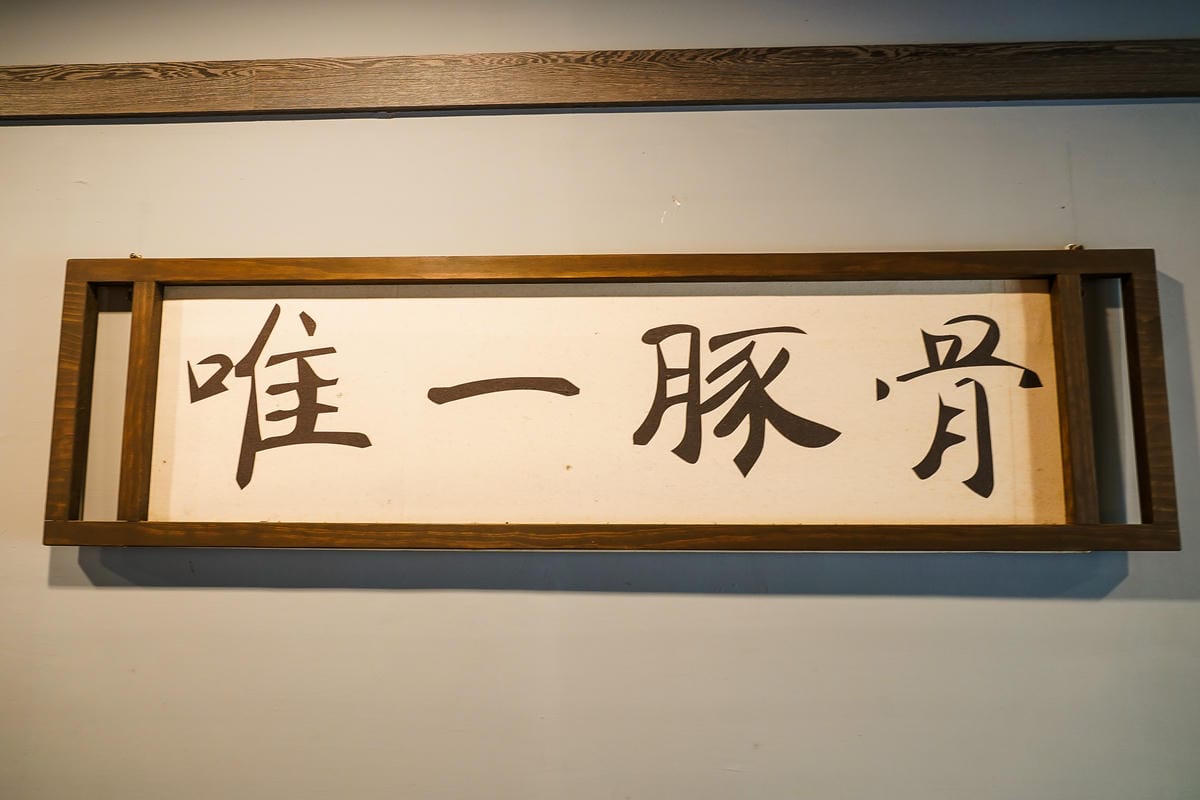 唯一豚骨